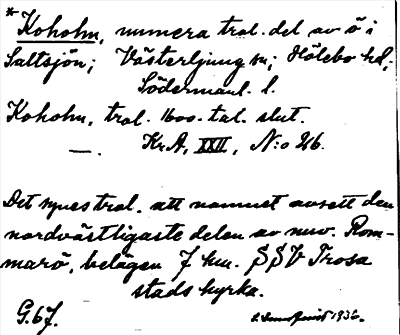 * Koholm, numera trol. del av ö i
Saltsjön; Västerljung sn; Hölebo hd;
Södermanl. l.
Koholm, trol. 1600-tal. slut.
—. Kr.A, XXII, N:o 26.
Det synes trol. att namnet avsett den
nordvästligaste delen av nuv. Rom-
marö, belägen 7 km. SSV Trosa
stads kyrka.
G.67. 1936.